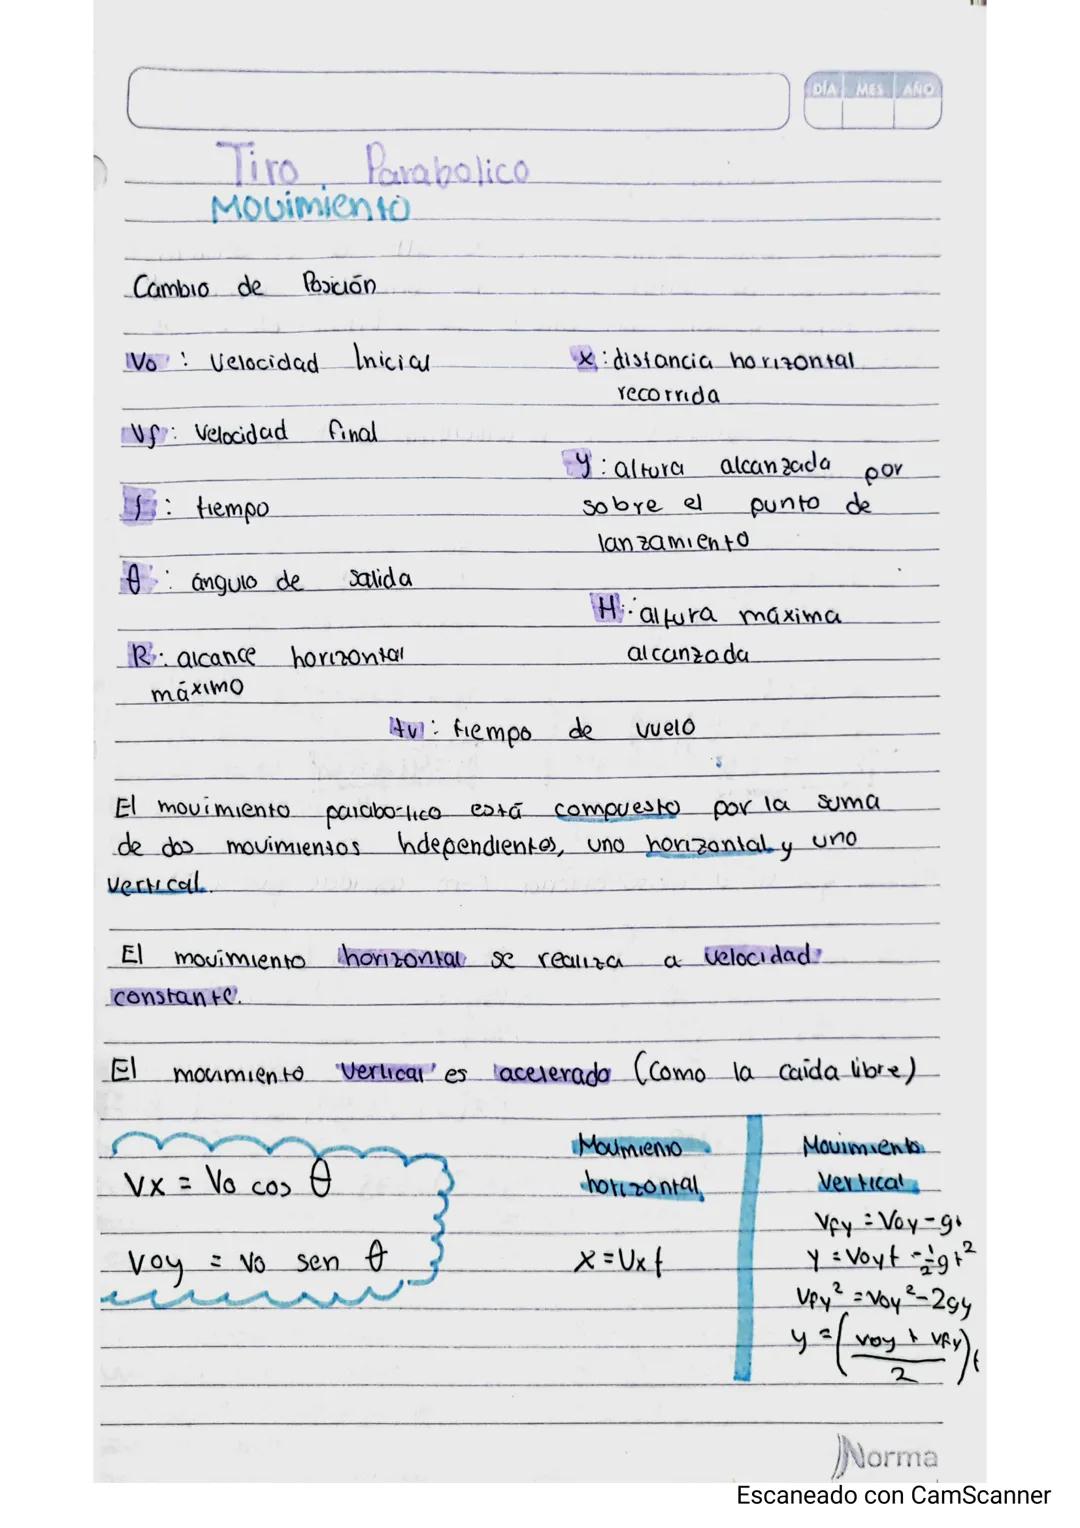 DÍA MES AÑO
Tiro Parabolico
Movimiento
Cambio de Posición
Vo : Velocidad Inicial
x : distancia horizontal
recorrida
Vf : Velocidad final
y : altura alcanzada por
sobre el punto de
lanzamiento
t : tiempo
θ : ángulo de salida
H : altura máxima
alcanzada
R : alcance horizontal
máximo
tv : tiempo de vuelo
El movimiento parabo-lico está compuesto por la suma
de dos movimientos Independientes, uno horizontal y uno
vertical.
El movimiento horizontal se realiza a velocidad
constante.
El movimiento vertical es acelerado (como la caida libre)
Vx = Vo cos θ
Voy = Vo sen θ
Movimiento
horizontal
x = Vx t
Movimiento
Vertical
Vfy = Voy - gt
y = Voyt - 1/2 gt²
Vfy² = Voy² - 2gy
y = (voy + vfy / 2) t
Norma
Escaneado con CamScanner